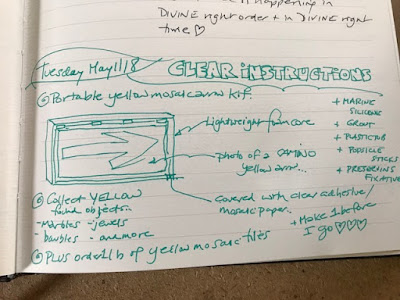 is happening in
DIVINE right order + in DIVINE right
time ♡
Tuesday May 1/18
CLEAR INSTRUCTIONS
Portable yellow mosaic arrow kit.
Lightweight foam core
photo of a CAMINO
yellow arrow...
covered with clear adhesive/
mosaic paper.
+ MARINE
SILICONE
+ GROUT
+ PLASTIC TUB
+ POPSICLE
STICKS
+ PRESERVING
FIXATIVE
+ Make 1 before
I go ♡♡♡
Collect YELLOW
found objects..
- Marbles - jewels
- baubles - and more
PLUS order 1 lb of yellow mosaic tiles